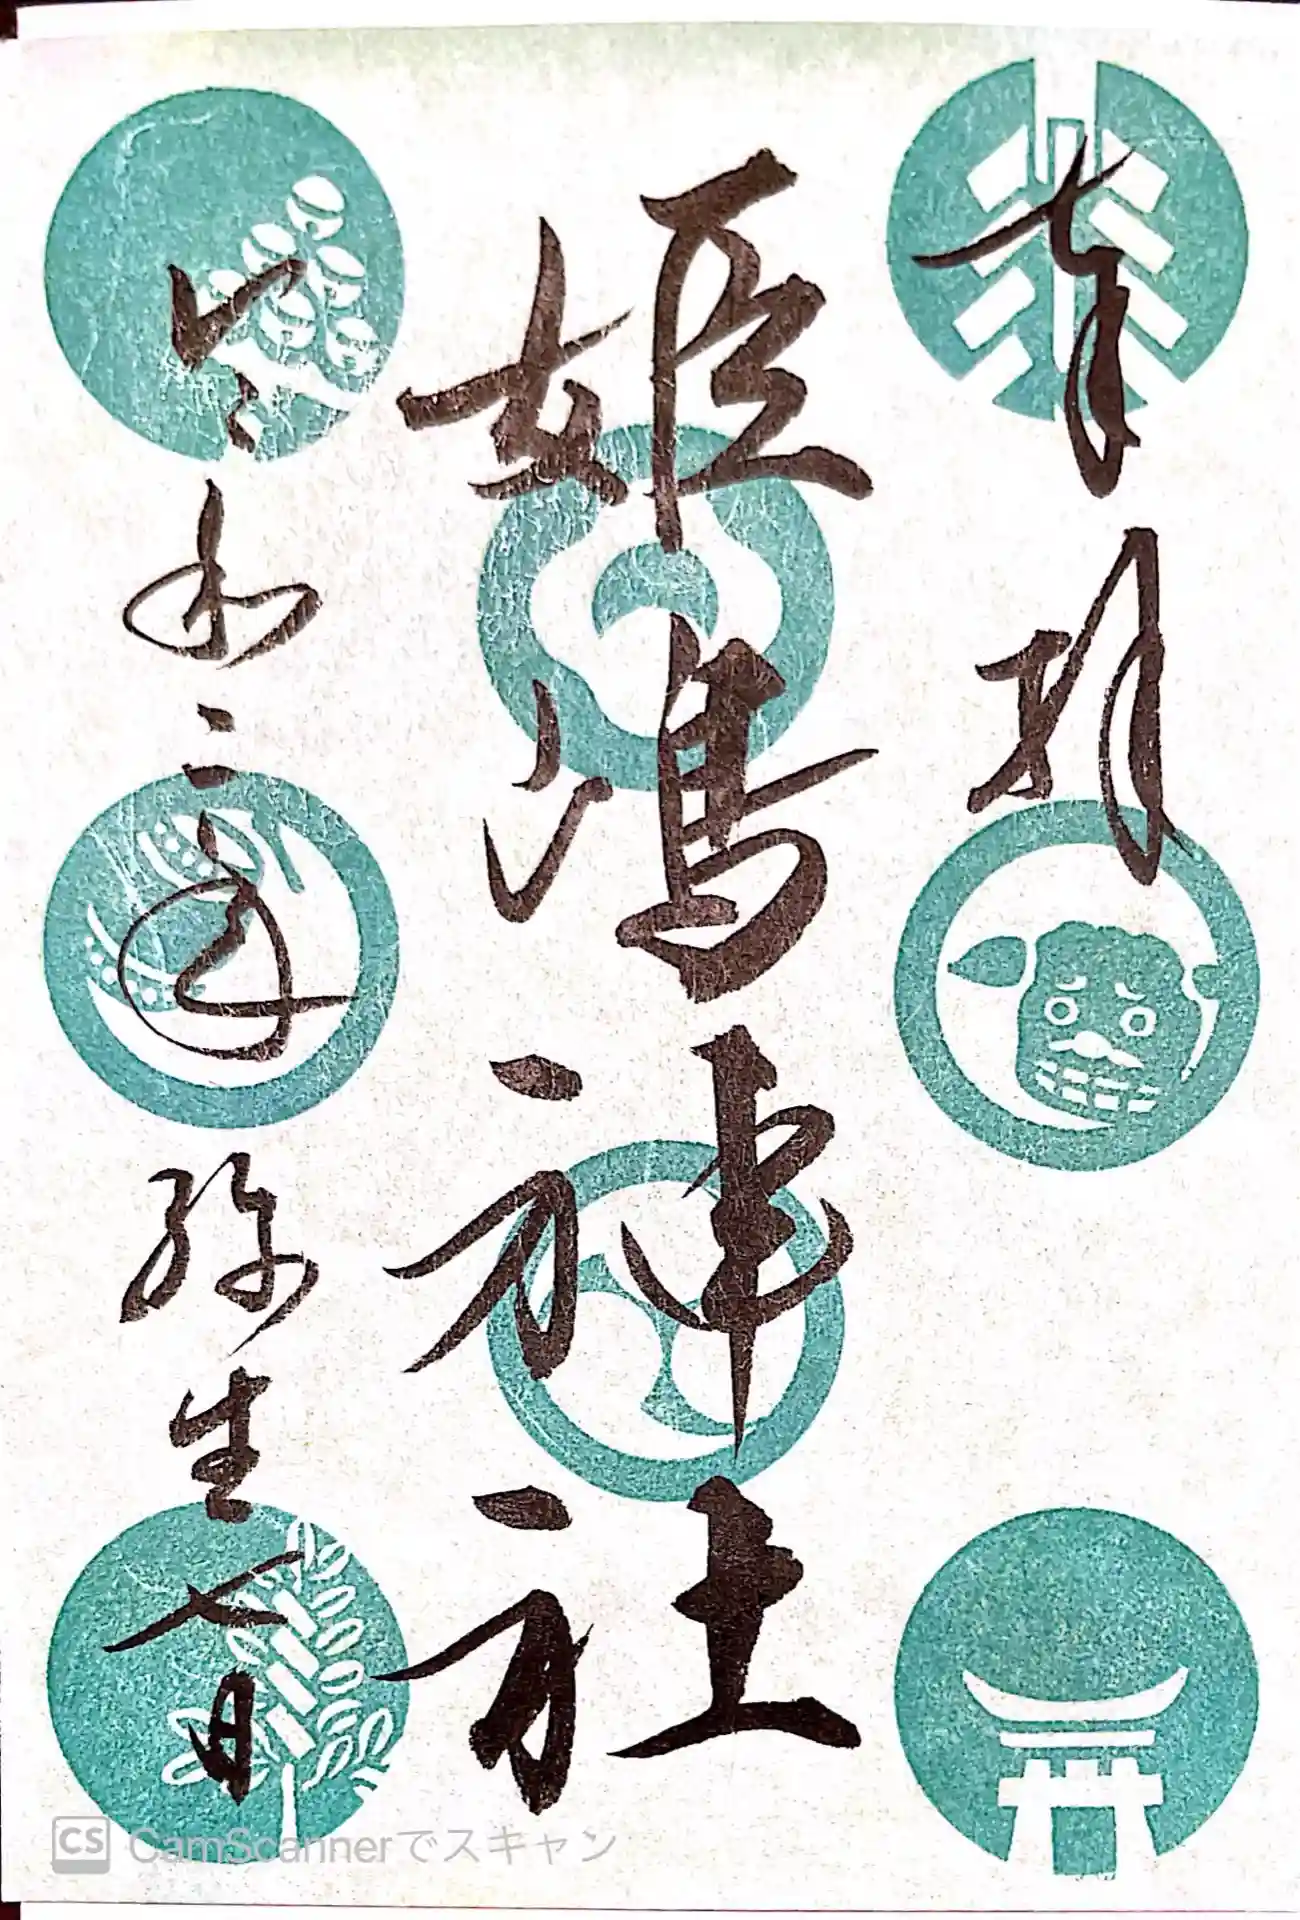 奉拝
姫嶋神社
令和二年弥生七日
CS CamScannerでスキャン